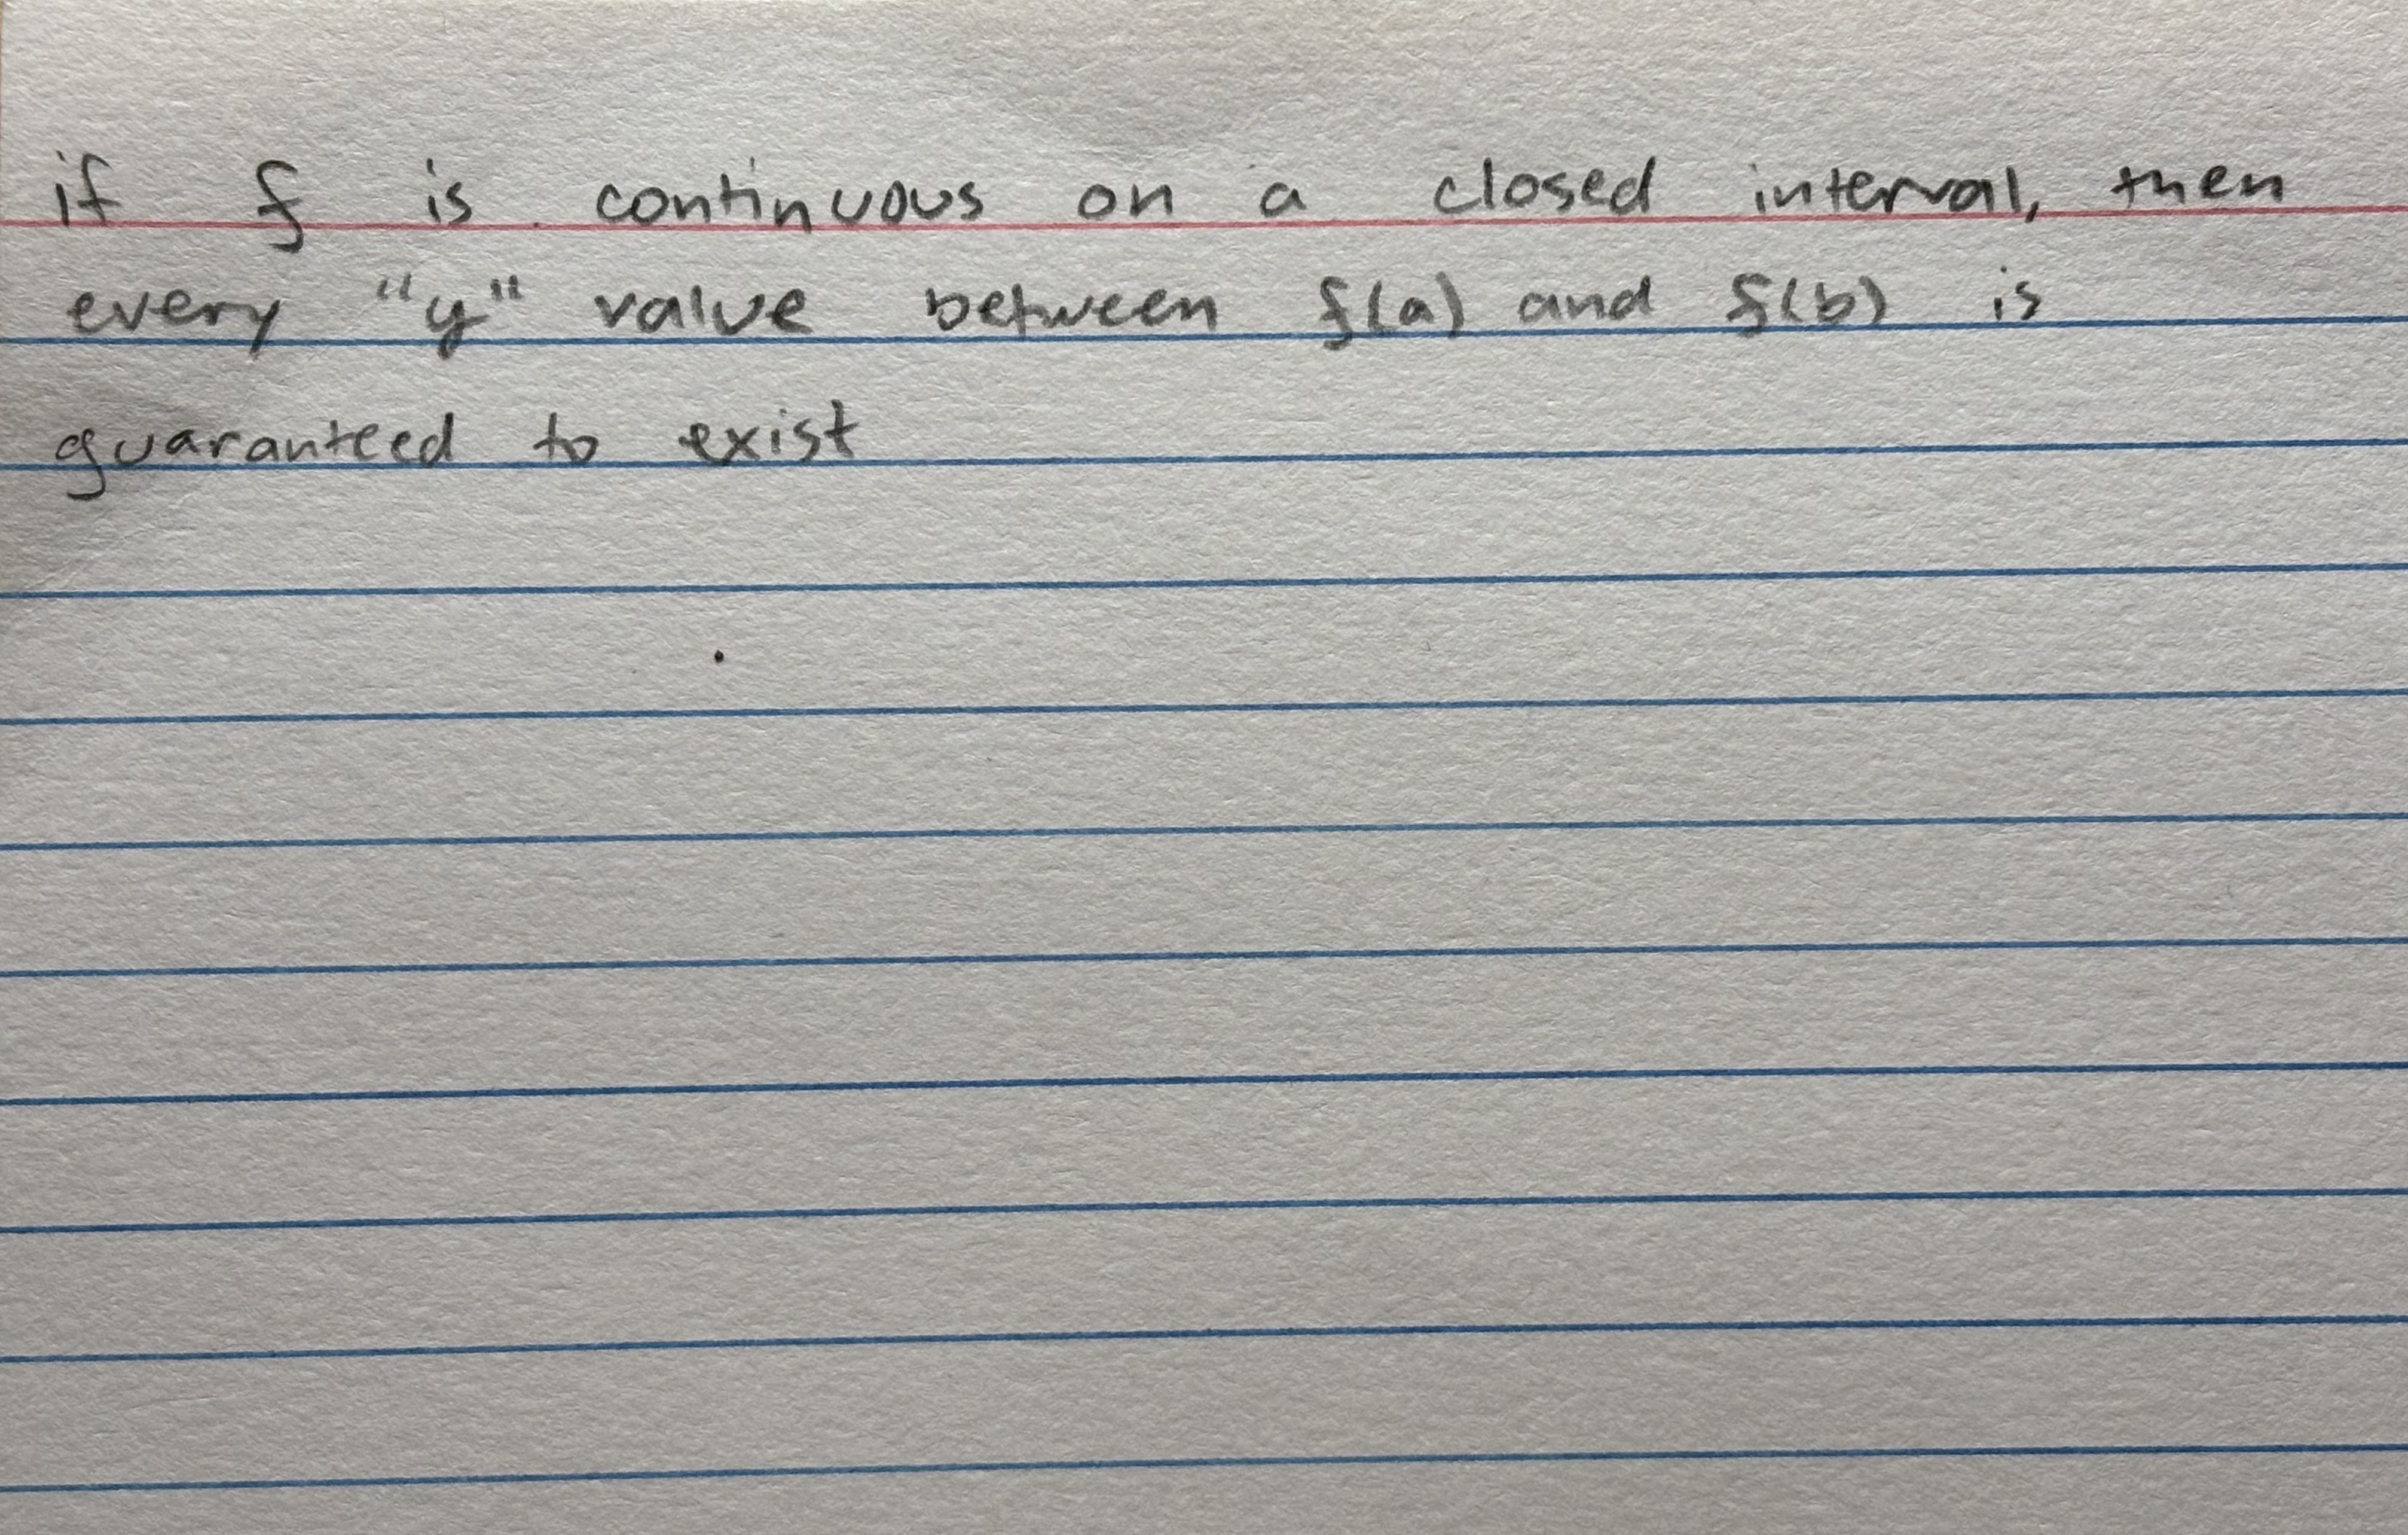 if f is continuous on a closed interval, then
every "y" value between f(a) and f(b) is
guaranteed to exist